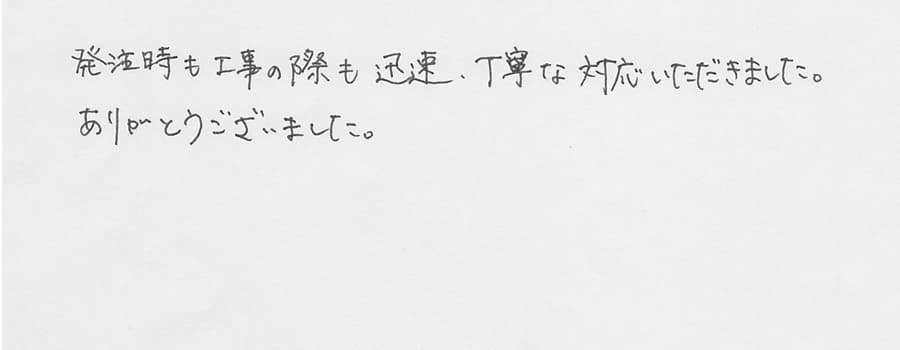 発注時も工事の際も迅速、丁寧な対応いただきました。
ありがとうございました。